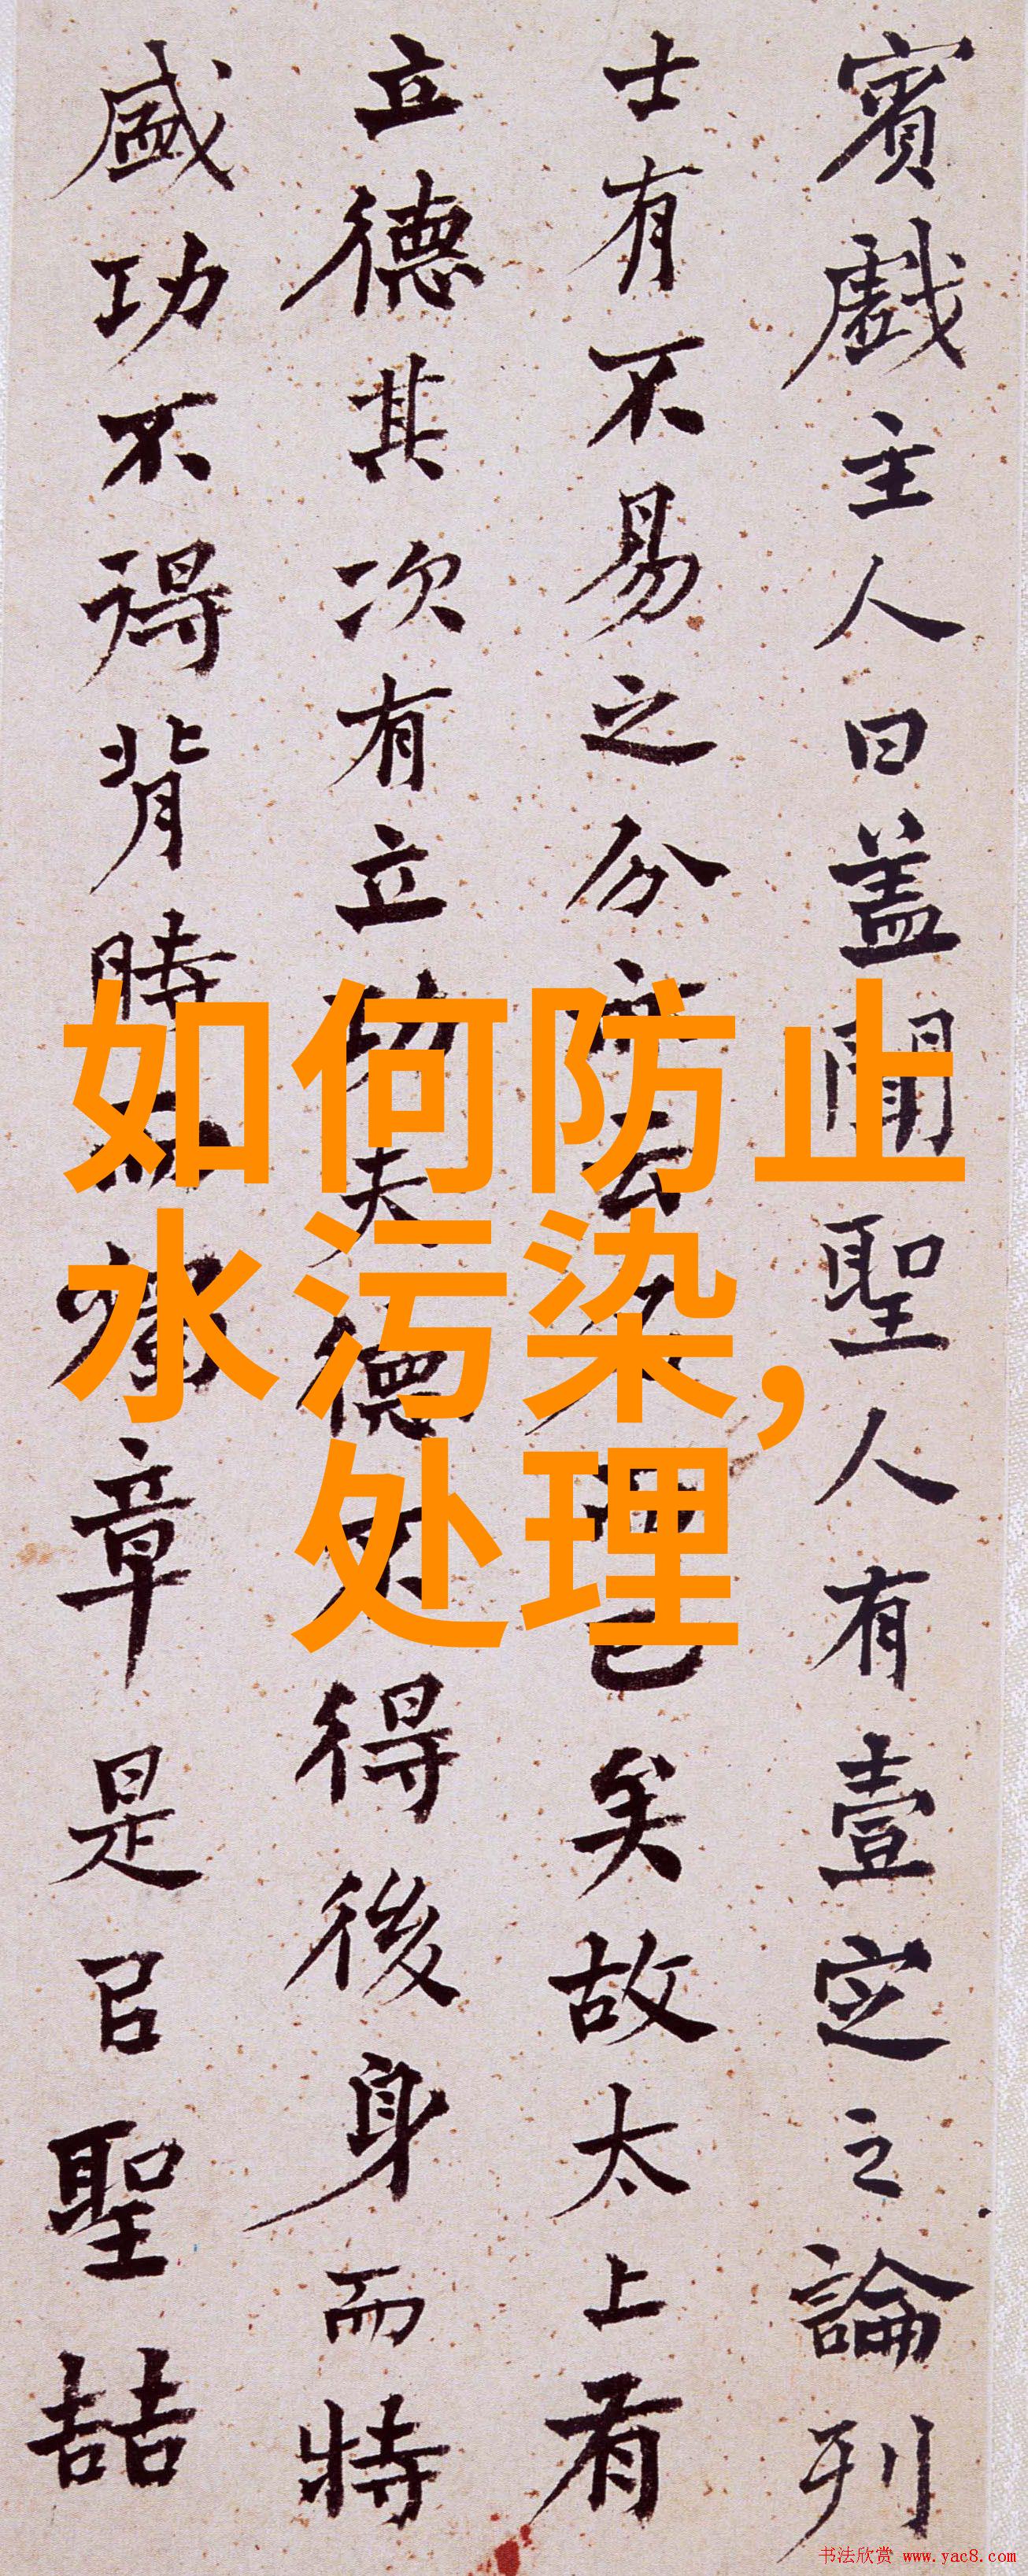 賓戯主人曰盖聞聖人有壹定之論列
士有不易之分亦云名而已矣故太上有
立德其次有立功夫德不得後身而特
盛功不得背時而獨章是㠯聖喆
如何防止
水污染,
处理
书法欣赏 www.yac8.com